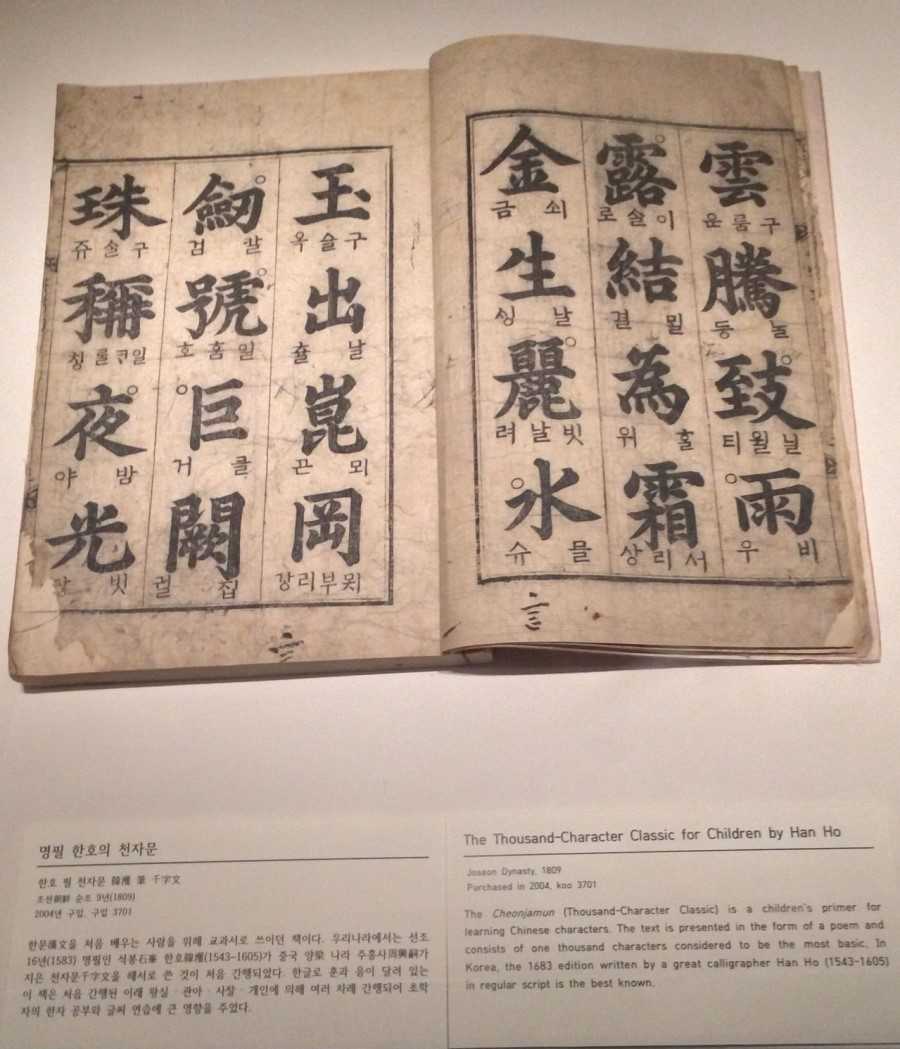 雲 구룸 운
騰 등
致 닐월 티
雨 비 우
露 이솔 로
結 결
為 홀 위
霜 서리 상
金 쇠 금
生 날 싱
麗 빗날 려
水 믈 슈
玉 구슬 옥
出 날 츌
崑 뫼 곤
岡 묏부리 강
劒 칼 검
號 일홈 호
巨 클 거
闕 집 궐
珠 구슬 쥬
稱 칭
夜 밤 야
光 빗
명필 한호의 천자문
한호 필 천자문 韓濩 筆 千字文
조선朝鮮 순조 9년(1809)
2004년 구입, 구입 3701
한문漢文을 처음 배우는 사람을 위해 교과서로 쓰이던 책이다. 우리나라에서는 선조
16년(1583) 명필인 석봉石峯 한호韓濩(1543-1605)가 중국 양梁 나라 주흥사周興嗣가
지은 천자문千字文을 해서로 쓴 것이 처음 간행되었다. 한글로 훈과 음이 달려 있는
이 책은 처음 간행된 이래 왕실·관아·사찰·개인에 의해 여러 차례 간행되어 초학
자의 한자 공부와 글씨 연습에 큰 영향을 주었다.
The Thousand-Character Classic for Children by Han Ho
Joseon Dynasty, 1809
Purchased in 2004, koo 3701
The Cheonjamun (Thousand-Character Classic) is a children's primer for
learning Chinese characters. The text is presented in the form of a poem and
consists of one thousand characters considered to be the most basic. In
Korea, the 1683 edition written by a great calligrapher Han Ho (1543-1605)
in regular script is the best known.